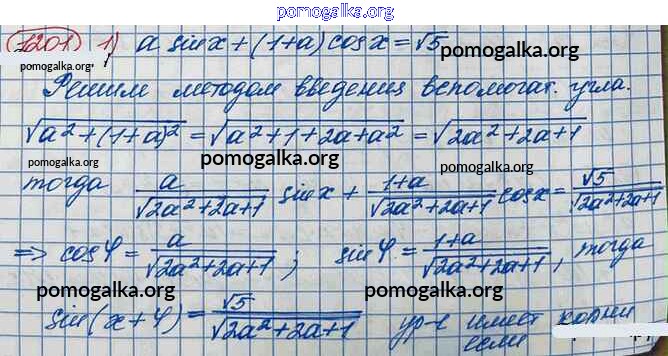 pomogalka.org
1201 1) a sin x + (1+a) cos x = √5
pomogalka.org
pomogalka.org
Решим методом введения вспомогат. угла.
√(a²+(1+a)²) = √(a²+1+2a+a²) = √(2a²+2a+1)
pomogalka.org
тогда a/√(2a²+2a+1) sin x + (1+a)/√(2a²+2a+1) cos x = √5/√(2a²+2a+1)
pomogalka.org
pomogalka.org
=> cos φ = a/√(2a²+2a+1) ; sin φ = (1+a)/√(2a²+2a+1), тогда
pomogalka.org
pomogalka.org
sin(x+φ) = √5/√(2a²+2a+1) ур-е имеет корни
если